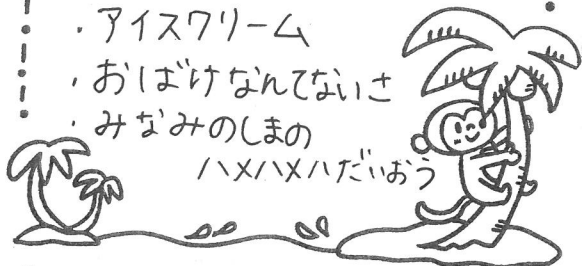 ・アイスクリーム
・おばけなんてないさ
・みなみのしまの
ハメハメハだいおう